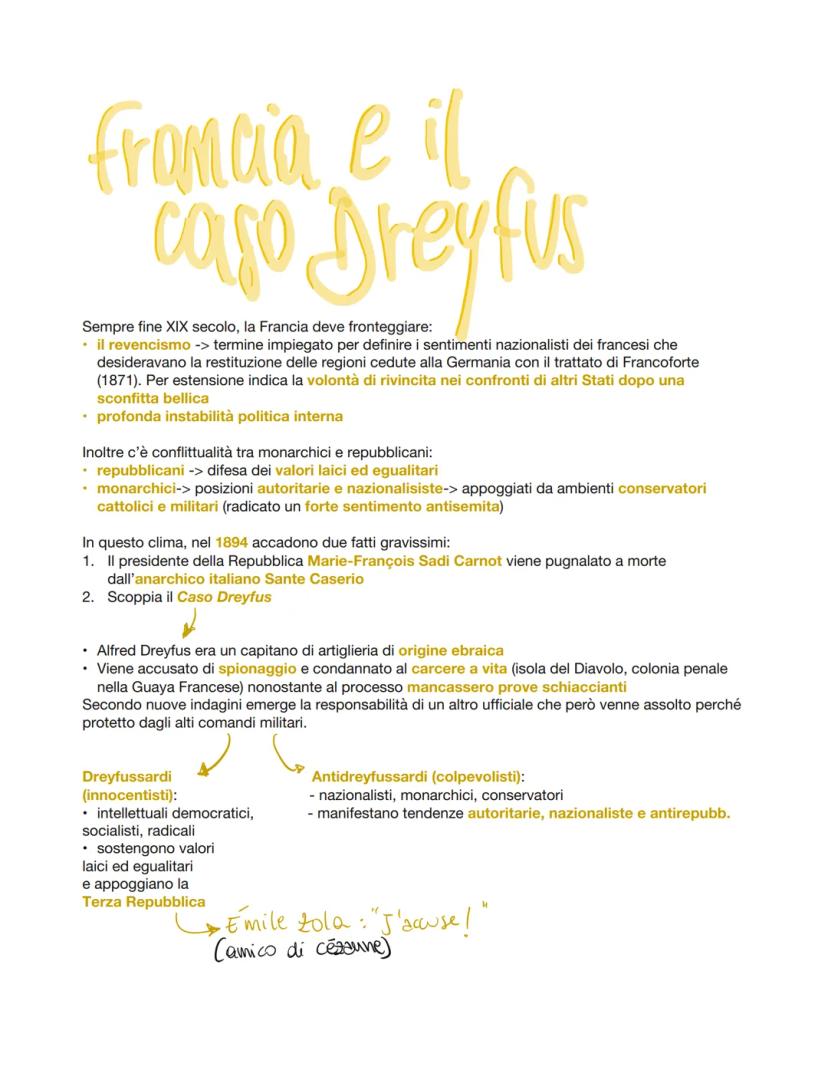 francia e il
caso Dreyfus
Sempre fine XIX secolo, la Francia deve fronteggiare:
• il revencismo -> termine impiegato per definire i sentimenti nazionalisti dei francesi che
desideravano la restituzione delle regioni cedute alla Germania con il trattato di Francoforte
(1871). Per estensione indica la volontà di rivincita nei confronti di altri Stati dopo una
sconfitta bellica
• profonda instabilità politica interna
Inoltre c'è conflittualità tra monarchici e repubblicani:
• repubblicani -> difesa dei valori laici ed egualitari
• monarchici-> posizioni autoritarie e nazionalisiste-> appoggiati da ambienti conservatori
cattolici e militari (radicato un forte sentimento antisemita)
In questo clima, nel 1894 accadono due fatti gravissimi:
1. Il presidente della Repubblica Marie-François Sadi Carnot viene pugnalato a morte
dall'anarchico italiano Sante Caserio
2. Scoppia il Caso Dreyfus
• Alfred Dreyfus era un capitano di artiglieria di origine ebraica
• Viene accusato di spionaggio e condannato al carcere a vita (isola del Diavolo, colonia penale
nella Guaya Francese) nonostante al processo mancassero prove schiaccianti
Secondo nuove indagini emerge la responsabilità di un altro ufficiale che però venne assolto perché
protetto dagli alti comandi militari.
Dreyfussardi
(innocentisti):
• intellettuali democratici,
socialisti, radicali
• sostengono valori
laici ed egualitari
e appoggiano la
Terza Repubblica
Antidreyfussardi (colpevolisti):
- nazionalisti, monarchici, conservatori
- manifestano tendenze autoritarie, nazionaliste e antirepubb.
Émile Zola : "J'accuse! "
(amico di cézanne)